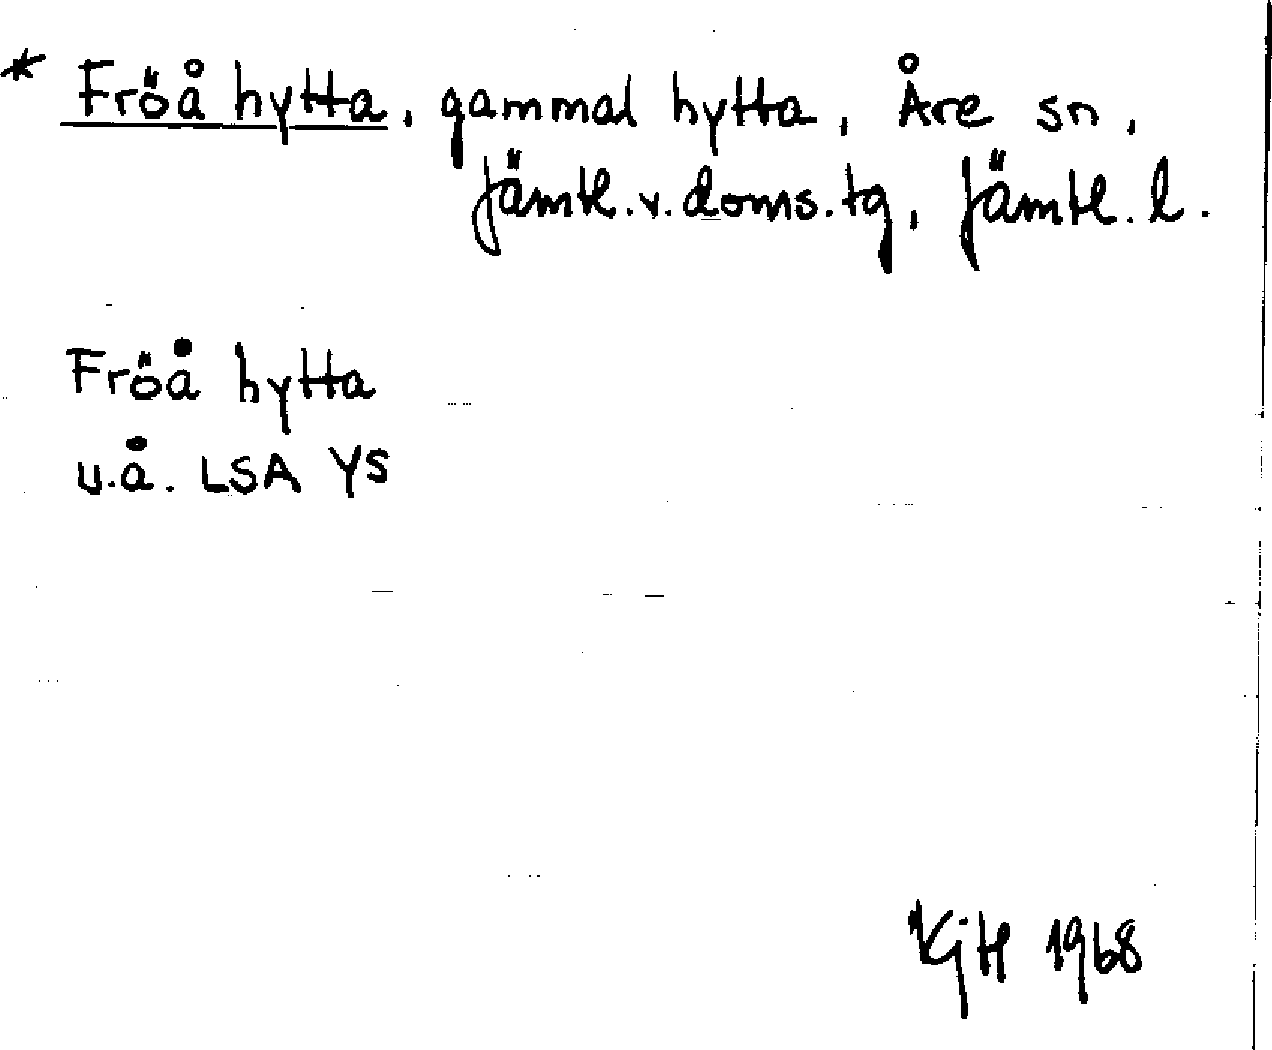 * Fröå hytta, gammal hytta, Åre sn,
Jämtl.v.doms.tg, Jämtl. l.
Fröå hytta
u.å. LSA Y5
KjH 1968